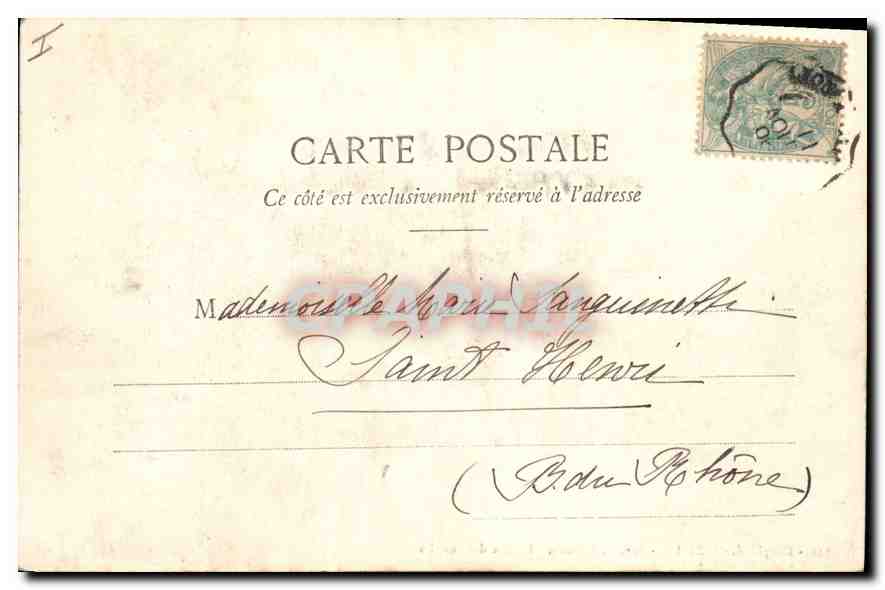 I
CARTE POSTALE
Ce côté est exclusivement réservé à l'adresse
Mademoiselle Marie Sanguinetti
Saint Henri
(B. du Rhône)